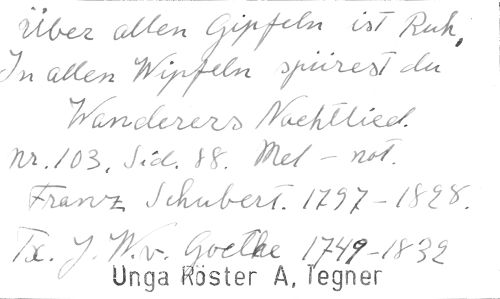 Über allen Gipfeln ist Ruh,
In allen Wipfeln spürest du
Wanderers Nachtlied.
Nr. 103, Sid. 88. Mel - not.
Franz Schubert. 1797-1828.
Tx. J. W. v. Goethe 1749-1832
Unga Röster A, Tegner